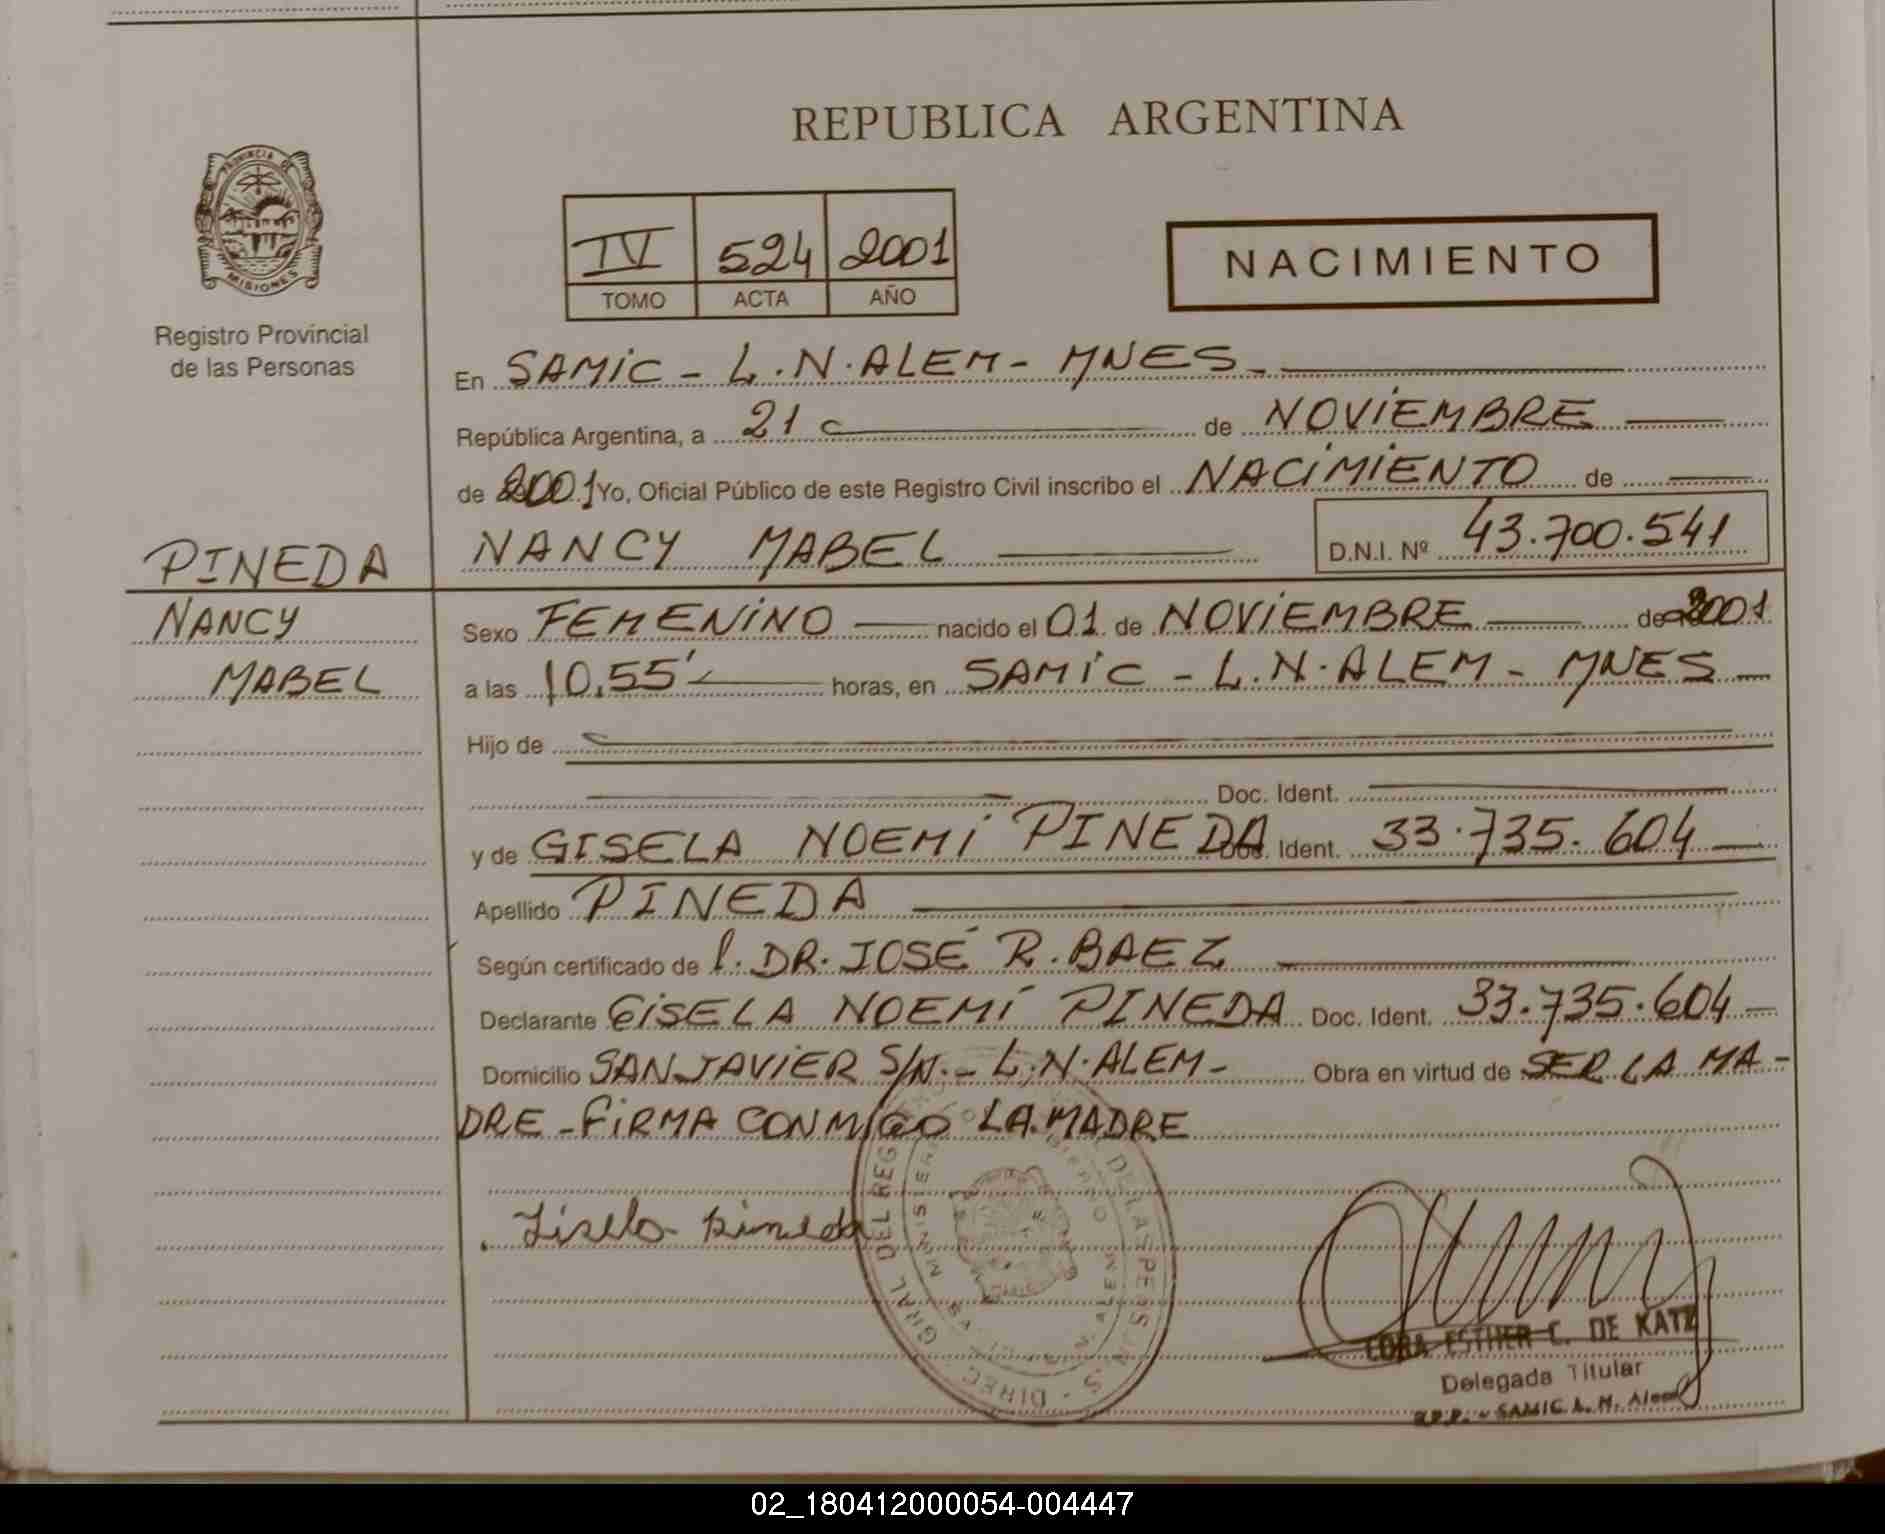 REPUBLICA ARGENTINA
PROVINCIA DE
MISIONES
Registro Provincial
de las Personas
IV 524 2001
TOMO ACTA AÑO
NACIMIENTO
En SAMiC - L.N.ALEM - MNES -
República Argentina, a 21 de NOViEMBRE
de 2001 Yo, Oficial Público de este Registro Civil inscribo el NACiMiENTO de
NANCY MABEL D.N.I. Nº 43.700.541
PINEDA
NANCY
MABEL
Sexo FEMENiNO nacido el 01 de NOViEMBRE de 2001
a las 10.55' horas, en SAMiC - L.N.ALEM - MNES
Hijo de
Doc. Ident.
y de GISELA NOEMi PINEDA Doc. Ident. 33.735.604
Apellido PINEDA
Según certificado de DR. JOSÉ R. BAEZ
Declarante GiSELA NOEMÍ PINEDA Doc. Ident. 33.735.604
Domicilio SAN JAViER S/N. - L.N.ALEM - Obra en virtud de SER LA MA-
DRE - FiRMA CONMiGO LA MADRE
Gisela Pineda
CORA ESTHER C. DE KATZ
Delegada Titular
R.P.P. - SAMIC L. N. Alem
02_180412000054-004447